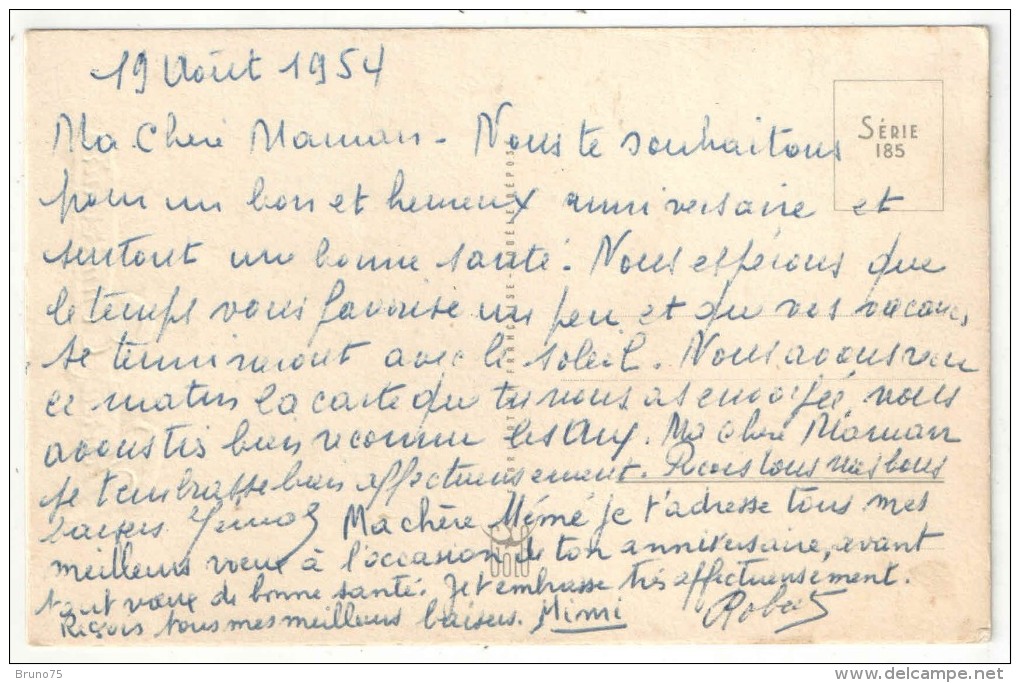 19 Août 1954
SÉRIE
185
Ma Chère Maman - Nous te souhaitons
pour un bon et heureux anniversaire et
surtout une bonne santé. Nous espérons que
le temps vous favorise un peu et que vos vacances
se termineront avec le soleil. Nous avons reçu
ce matin la carte que tu nous as envoyée, nous
avons très bien reconnu les Ma chère Maman
je t'embrasse bien affectueusement. Reçois tous mes bons
baisers Ma chère Mémé je t'adresse tous mes
meilleurs voeux à l'occasion de ton anniversaire, avant
tout voeux de bonne santé. Je t'embrasse très affectueusement.
Reçois tous mes meilleurs baisers. Mimi Robert
Bruno75
www.delcampe.net